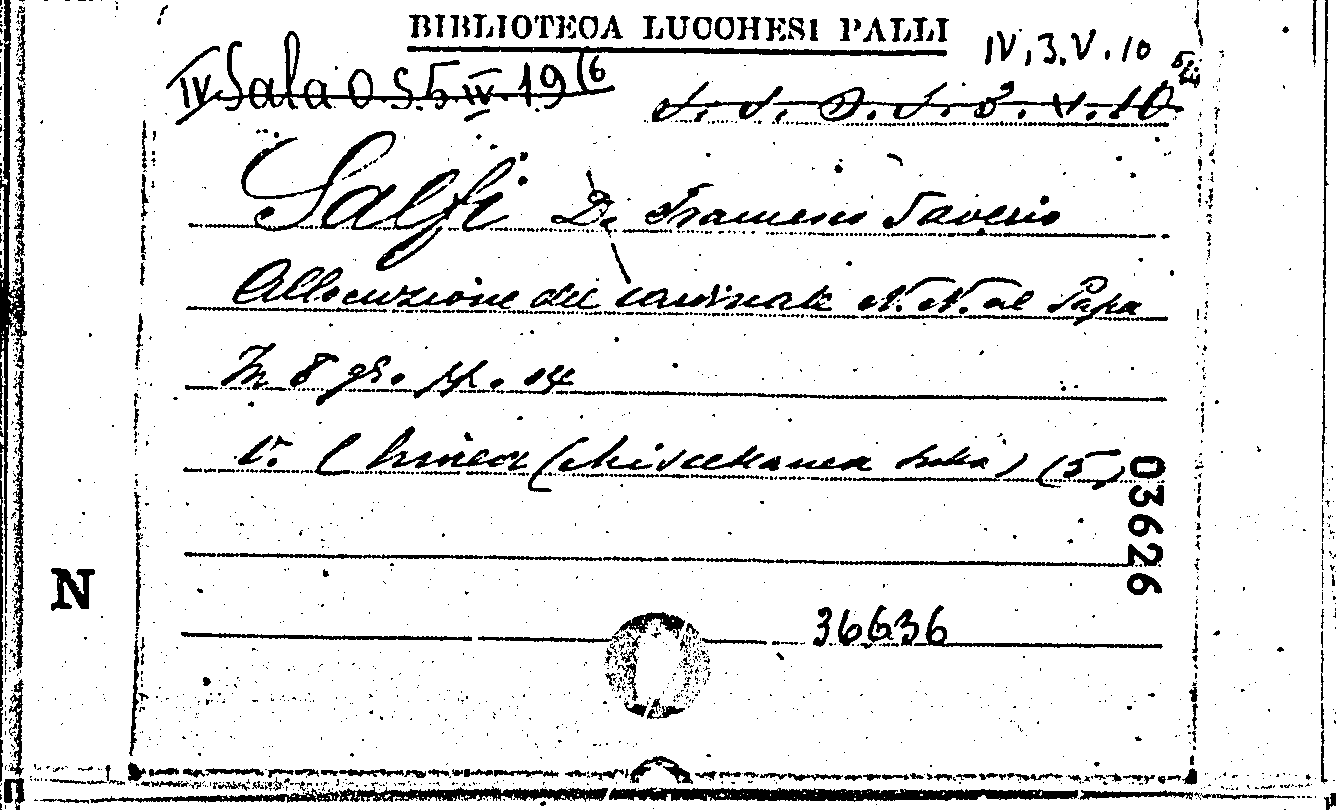 BIBLIOTECA LUCCHESI PALLI
IV. 3. V. 10
IV Sala O S 5 IV. 19 (6
Salfi D. Francesco Saverio
Allocuzione del cardinale N. N. al Papa
In 8 gr. pp. 14
V. (Miscellanea (5)
03626
N
36636